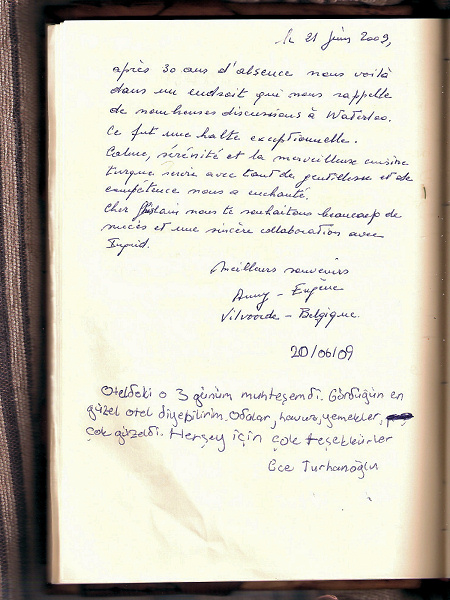 le 21 juin 2009,
après 30 ans d'absence nous voilà
dans un endroit qui nous rappelle
de nombreuses discussions à Waterloo.
Ce fut une halte exceptionnelle.
Calme, sérénité et la merveilleuse cuisine
turque servie avec tant de gentillesse et de
compétence nous a enchanté.
Cher Ghislain nous te souhaitons beaucoup de
succès et une sincère collaboration avec
Ingrid.
Meilleurs souvenirs
Anny - Eugène
Vilvoorde - Belgique.
20/06/09
Oteldeki o 3 günüm muhteşemdi. Gördüğün en
güzel otel diyebilirim. Odalar, havuz, yemekler,
çok güzeldi. Herşey için çok teşekkürler
Ece Turhanoğlu